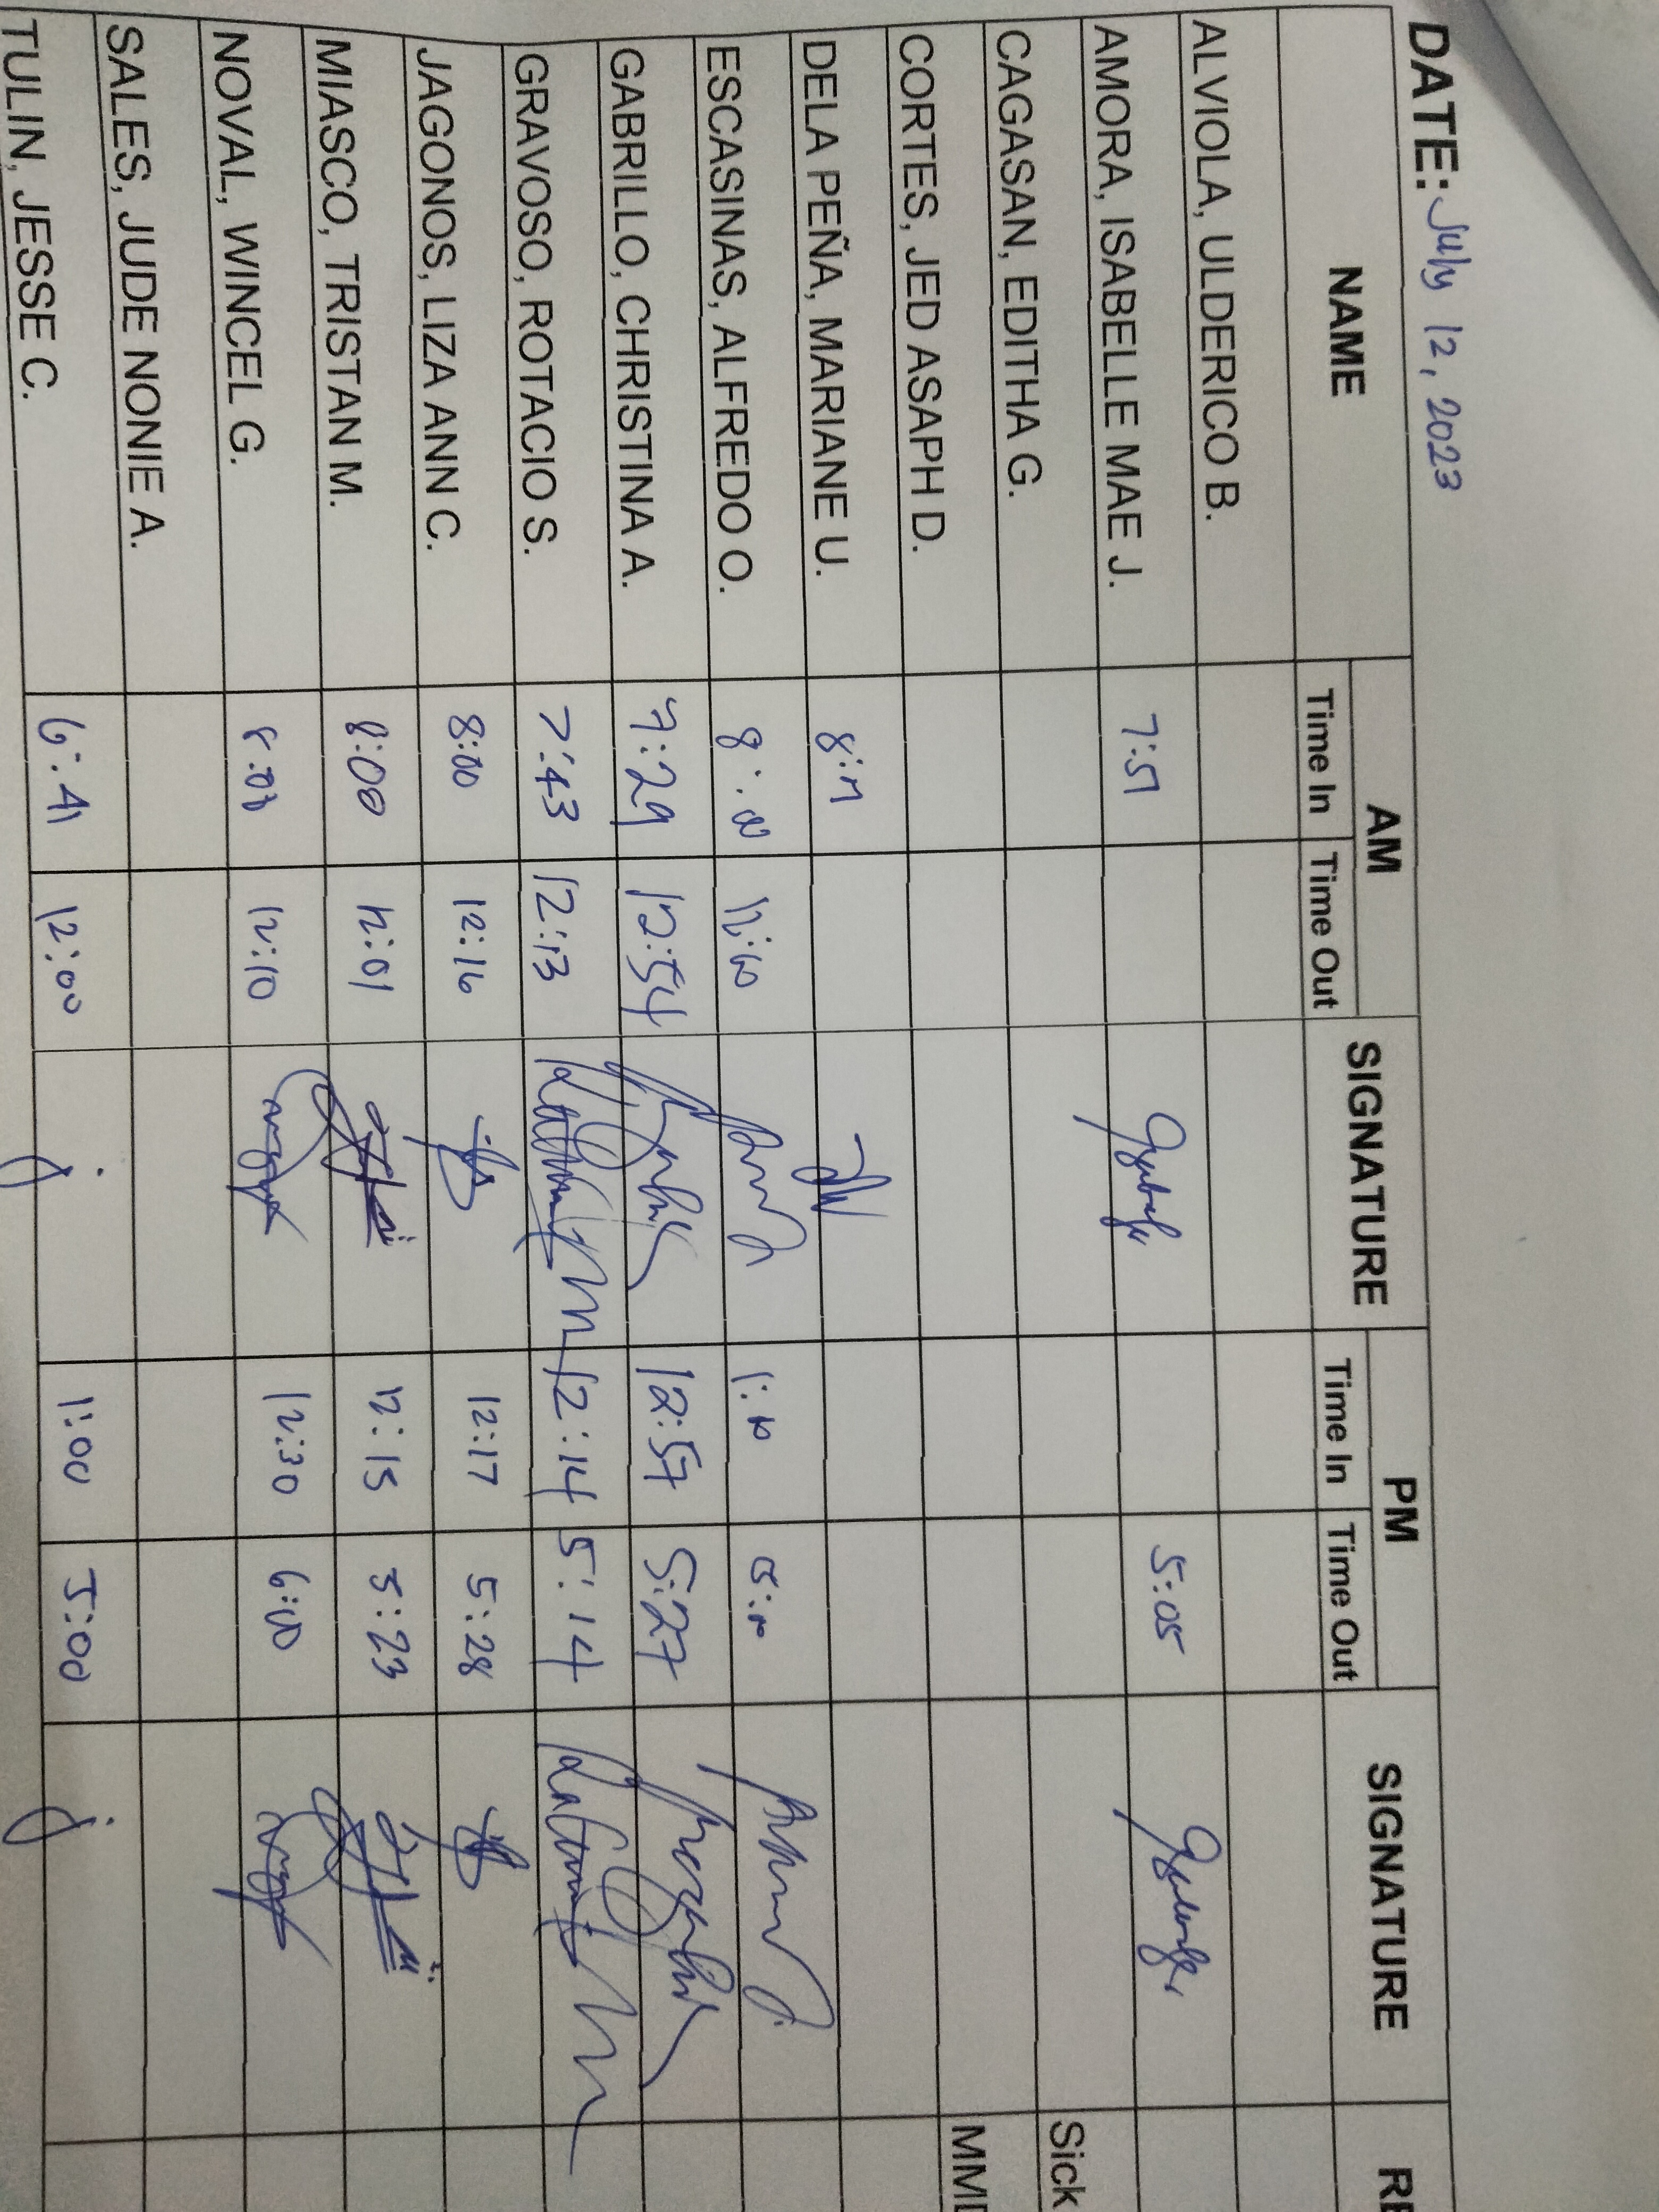 DATE: July 12, 2023
NAME AM SIGNATURE PM SIGNATURE RE
Time In Time Out Time In Time Out
ALVIOLA, ULDERICO B.
AMORA, ISABELLE MAE J. 7:51 5:05
CAGASAN, EDITHA G. Sick
CORTES, JED ASAPH D. MMD
DELA PEÑA, MARIANE U.
ESCASINAS, ALFREDO O. 8:00
GABRILLO, CHRISTINA A. 7:29 12:54 12:57 5:27
GRAVOSO, ROTACIO S. 7:43 12:13 12:14 5:14
JAGONOS, LIZA ANN C. 8:00 12:16 12:17 5:28
MIASCO, TRISTAN M. 8:00 12:01 12:15 5:23
NOVAL, WINCEL G. 12:10 12:30 6:00
SALES, JUDE NONIE A.
TULIN, JESSE C. 6:41 12:00 1:00 5:00